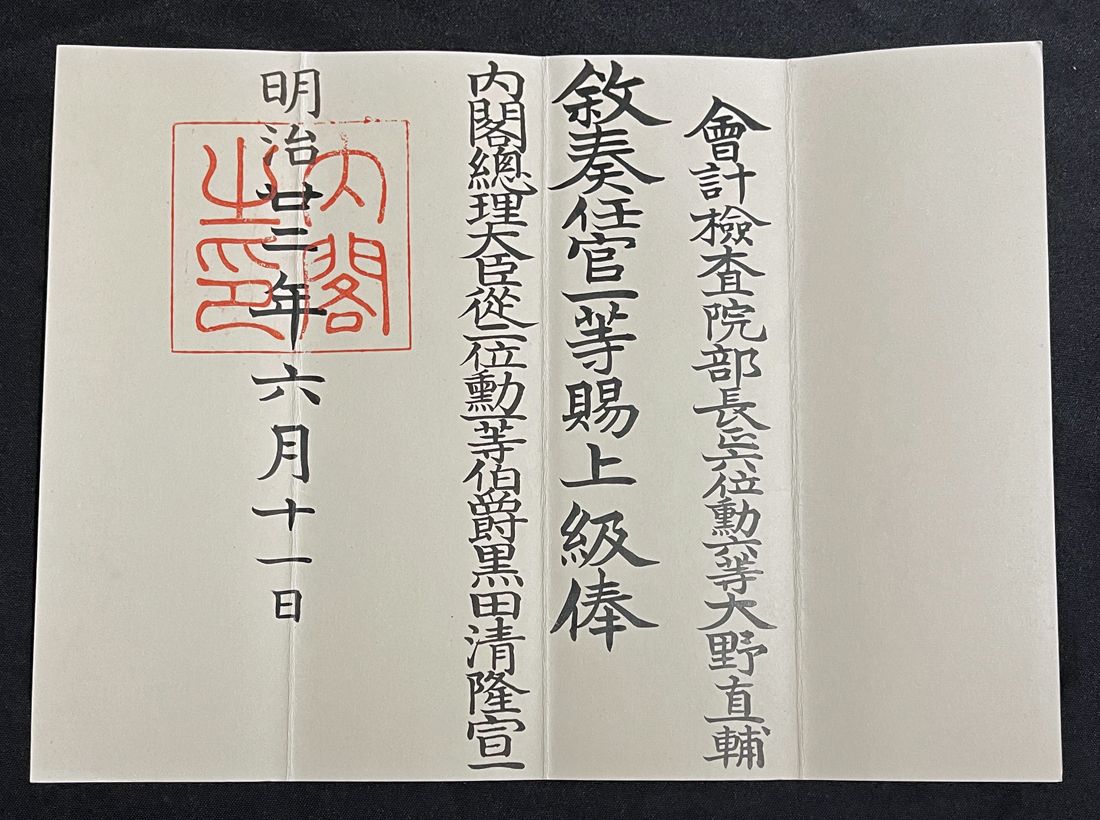 會計檢査院部長正六位勳六等大野直輔
敘奏任官一等賜上級俸
内閣總理大臣從二位勳一等伯爵黒田清隆宣
明治廿二年六月十一日
内閣之印